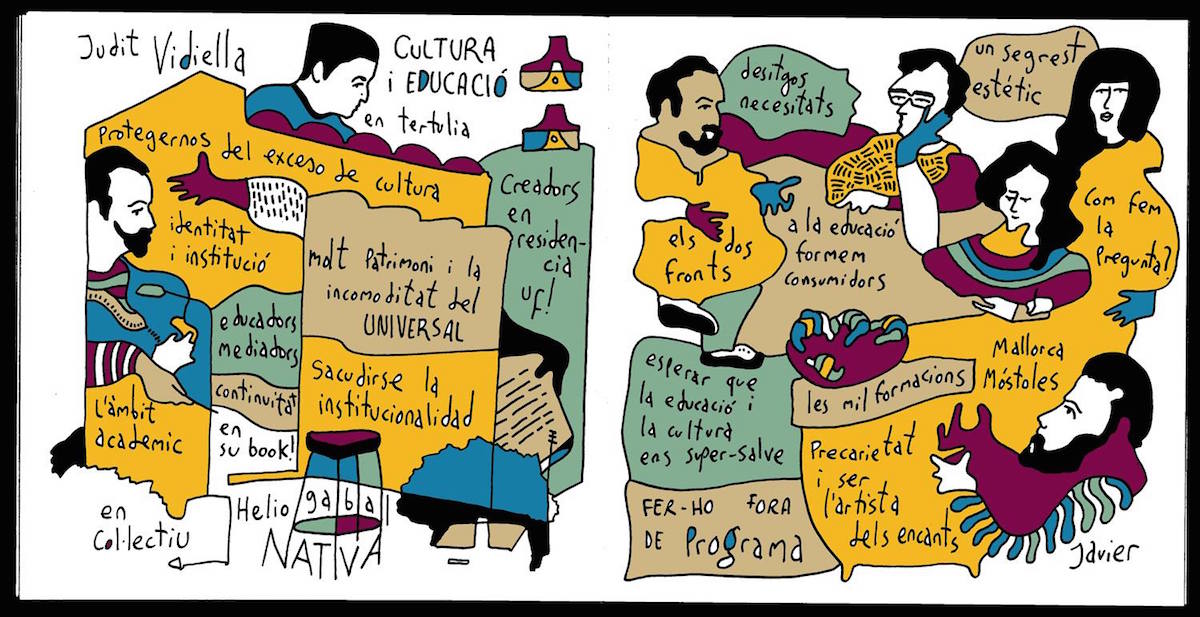 Judit Vidiella
CULTURA
i EDUCACIÓ
en tertulia
Protegernos del exceso de cultura
identitat
i institució
Creadors
en
residen-
cia
uf!
molt Patrimoni i la
incomoditat del
UNIVERSAL
educadors
mediadors
continuitat
en
su book!
Sacudirse la
institucionalidad
L'àmbit
academic
en
Col·lectiu
Heliogabal
NATIVA
desitgos
necesitats
un segrest
estétic
els dos
fronts
a la educació
formem
consumidors
Com fem
la
Pregunta?
esperar que
la educació i
la cultura
ens super-salve
les mil formacions
Mallorca
Móstoles
Precarietat
i ser
l'artista
dels encants
FER-HO FORA
DE Programa
Javier